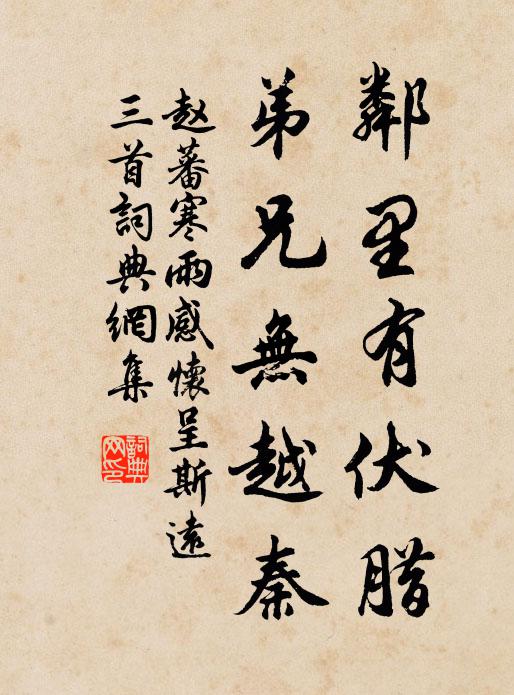 鄰里有伏腊
弟兄無越秦
赵蕃寒雨感懷呈斯遠
三首詞典網集
詞典网印